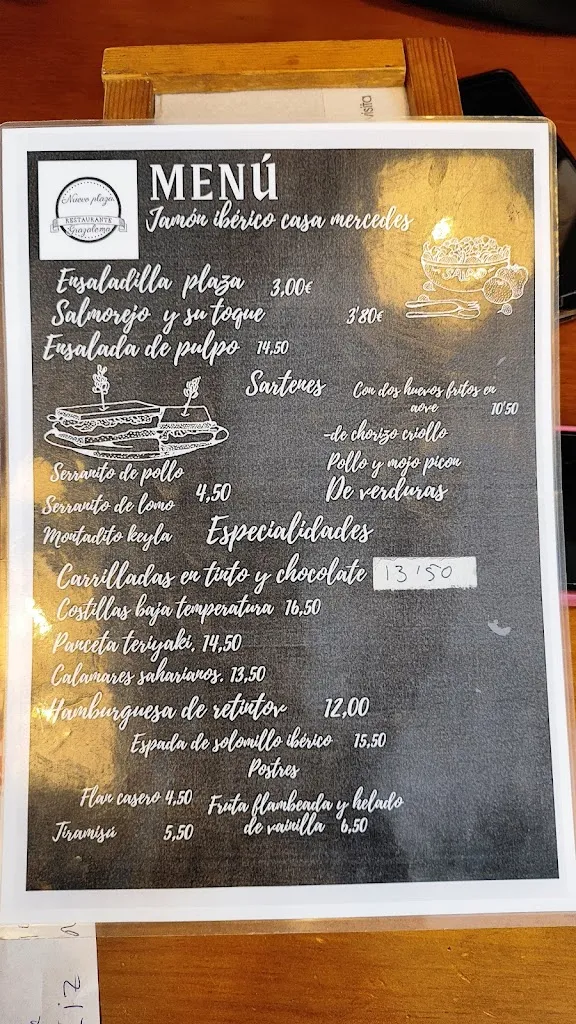 visita
Nuevo plaza
RESTAURANTE
Grazalema
MENÚ
Jamón ibérico casa mercedes
Ensaladilla plaza 3,00€
Salmorejo y su toque 3'80€
Ensalada de pulpo 14,50
Sartenes Con dos huevos fritos en
aove 10'50
-de chorizo criollo
Pollo y mojo picon
De verduras
Serranito de pollo
Serranito de lomo 4,50
Montadito keyla
Especialidades
Carrilladas en tinto y chocolate 13'50
Costillas baja temperatura 16,50
Panceta teriyaki, 14,50
Calamares saharianos. 13,50
Hamburguesa de retintov 12,00
Espada de solomillo ibérico 15,50
Postres
Flan casero 4,50
Tiramisú 5,50
Fruta flambeada y helado
de vainilla 6,50